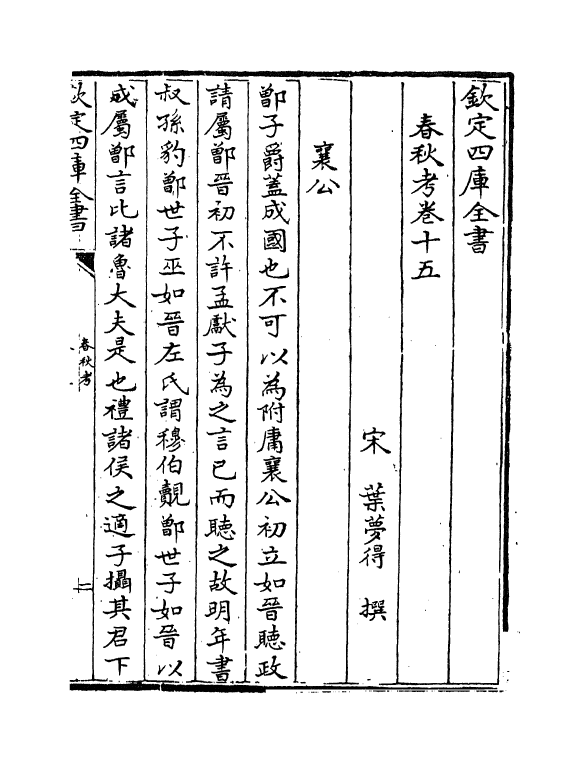 欽定四庫全書
春秋考卷十五
宋 葉夢得 撰
襄公
鄫子爵蓋成國也不可以為附庸襄公初立如晉聽政
請屬鄫晉初不許孟獻子為之言已而聽之故明年書
叔孫豹鄫世子巫如晉左氏謂穆伯覿鄫世子如晉以
成屬鄫言比諸魯大夫是也禮諸侯之適子攝其君下
欽定四庫全書
春秋考